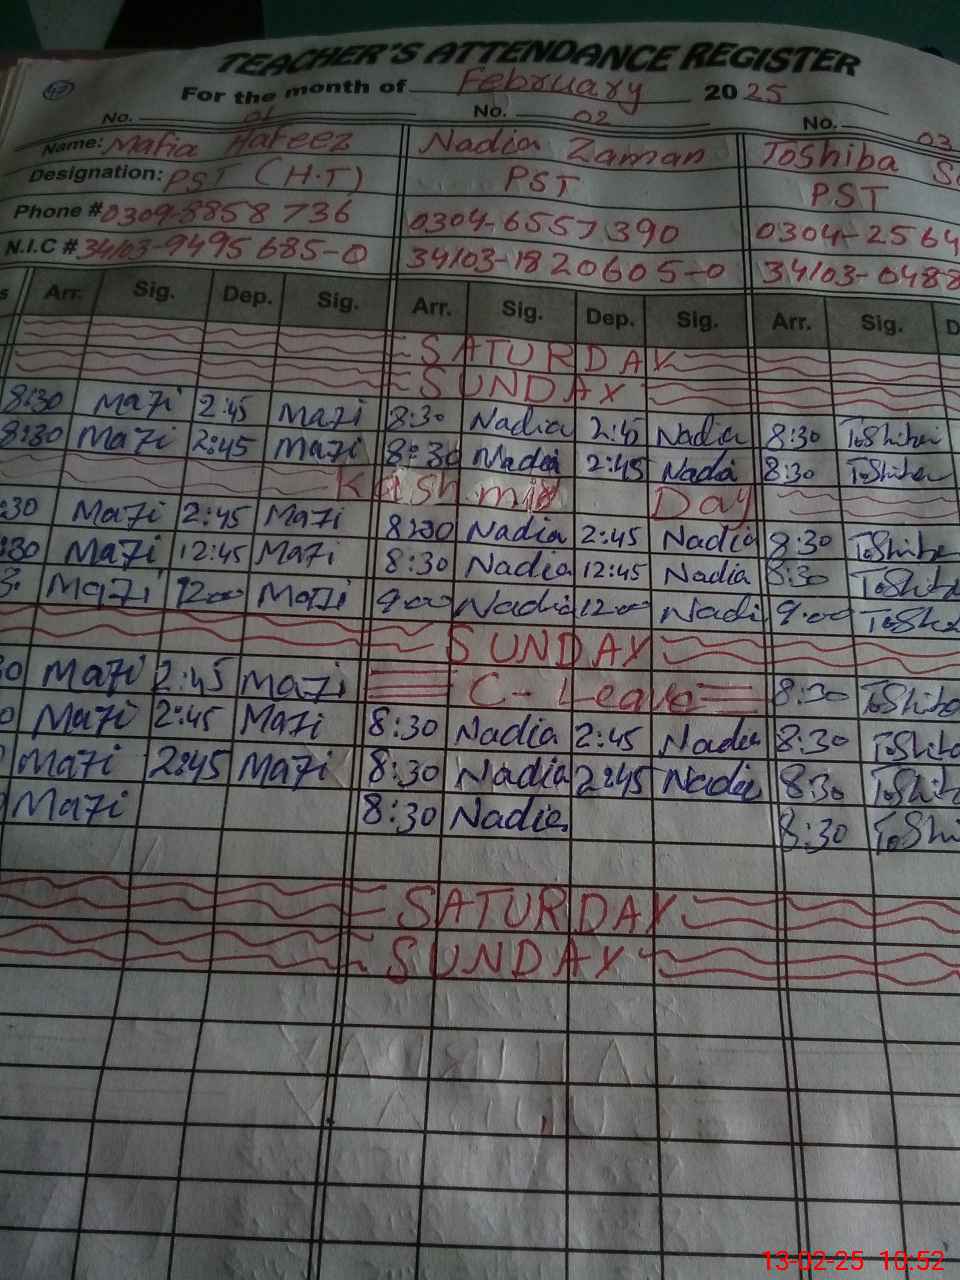 TEACHER'S ATTENDANCE REGISTER
47
For the month of February 2025
No. 01 No. 02 No. 03
Name: Mafia Hafeez Nadia Zaman Toshiba
Designation: PST (H.T) PST PST
Phone # 0309-8858736 0304-6557390 0304-2564
N.I.C # 34103-9495685-0 34103-1820605-0 34103-0488
s Arr. Sig. Dep. Sig. Arr. Sig. Dep. Sig. Arr. Sig. D
SATURDAY
SUNDAY
8:30 Mafi 2:45 Mafi 8:30 Nadia 2:45 Nadia 8:30 Toshiba
8:30 Mafi 2:45 Mafi 8:30 Nadia 2:45 Nadia 8:30 Toshiba
Kashmir Day
:30 Mafi 2:45 Mafi 8:30 Nadia 2:45 Nadia 8:30 Toshiba
:30 Mafi 12:45 Mafi 8:30 Nadia 12:45 Nadia 8:30 Toshiba
Mafi 12:00 Mafi 9:00 Nadia 12:00 Nadi 9:00 Toshiba
SUNDAY
0 Mafi 2:45 Mafi C-Leave 8:30 Toshiba
0 Mafi 2:45 Mafi 8:30 Nadia 2:45 Nadia 8:30 Toshiba
Mafi 2:45 Mafi 8:30 Nadia 2:45 Nadia 8:30 Toshib
Mafi 8:30 Nadia 8:30 Toshi
SATURDAY
SUNDAY
13-02-25 10:52